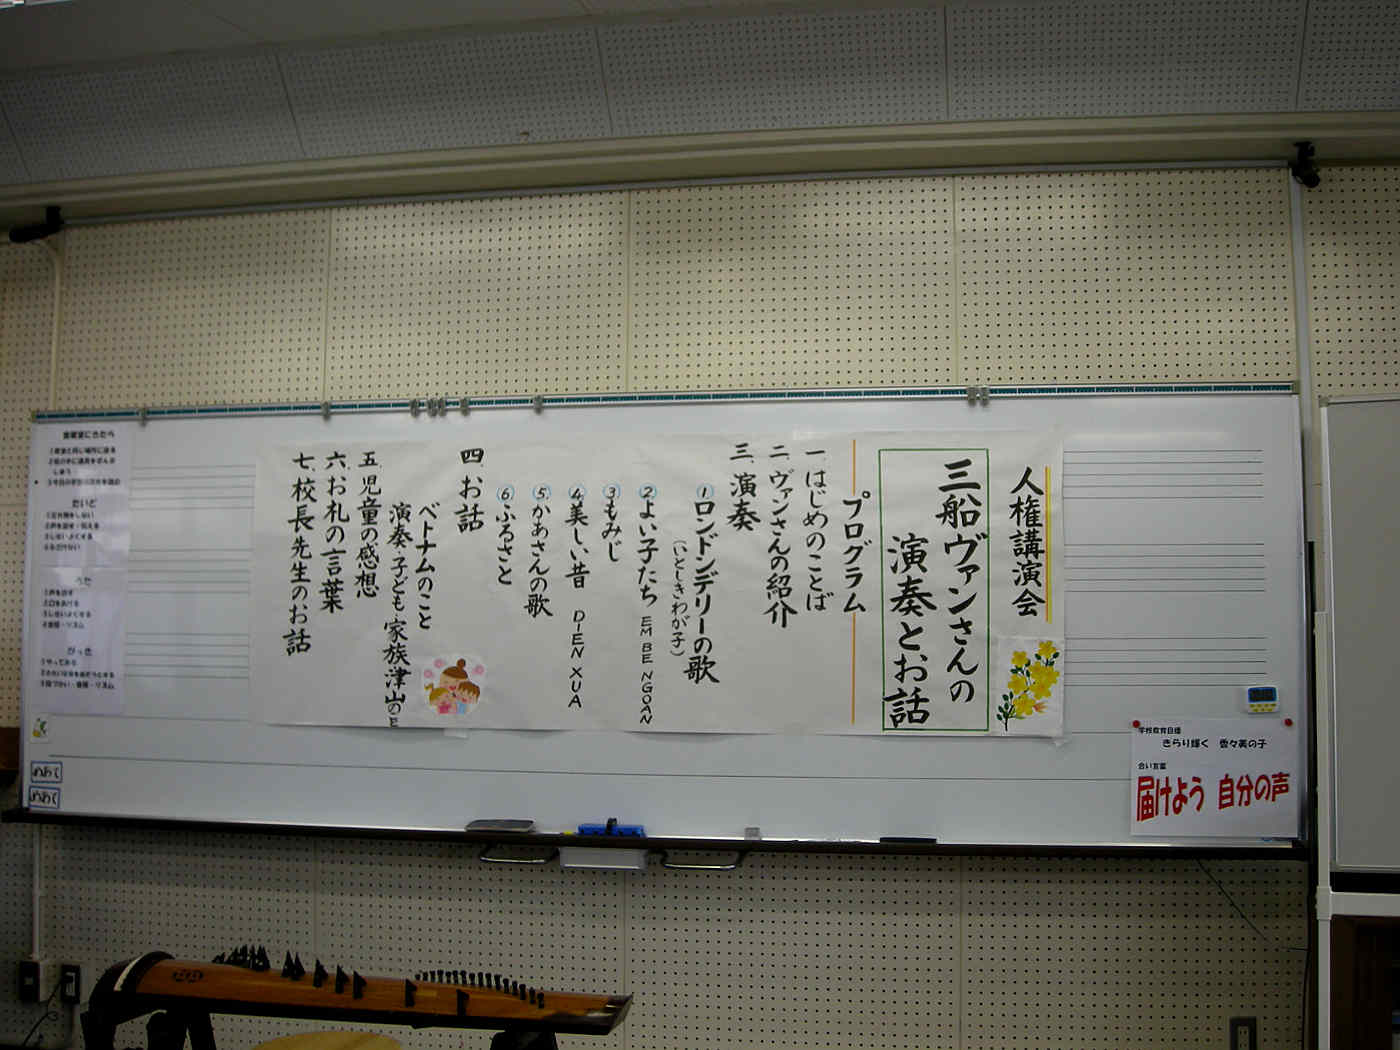 人権講演会
三船ヴァンさんの
演奏とお話
プログラム
一、はじめのことば
二、ヴァンさんの紹介
三、演奏
①ロンドンデリーの歌
（いとしきわが子）
②よい子たち EM BE NGOAN
③もみじ
④美しい昔 DIEN XUA
⑤かあさんの歌
⑥ふるさと
四、お話
ベトナムのこと
演奏・子ども・家族津山のこと
五、児童の感想
六、お礼の言葉
七、校長先生のお話
たいど
うた
がっき
めあて
めあて
学校教育目標
きらり輝く 香々美の子
合い言葉
届けよう 自分の声